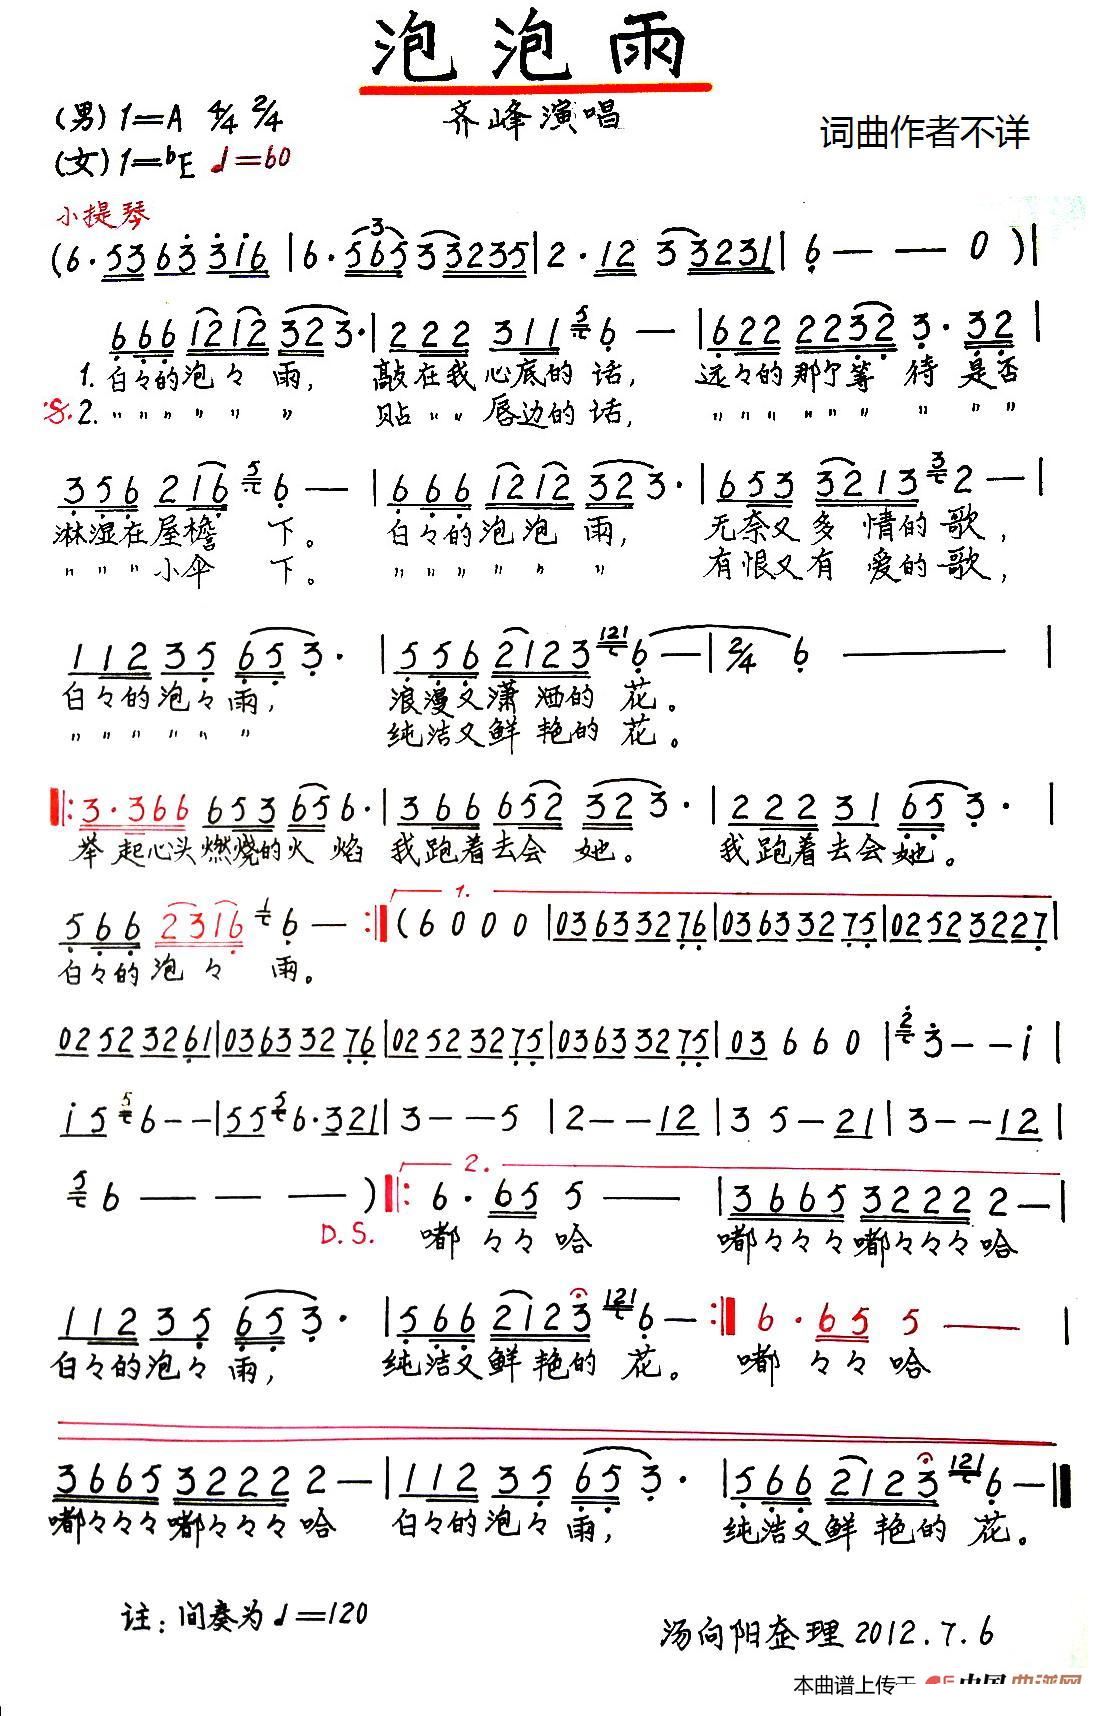 泡泡雨
(男) 1=A 4/4 2/4
齐峰演唱
词曲作者不详
(女) 1=bE ♩=60
小提琴
(6·53 63 316 | 6·565 33235 | 2·12 33231 | 6 — — 0 ) |
666 1212 323· | 222 311 5 6 — | 622 2232 3·32 |
1. 白々的泡々雨, 敲在我心底的话, 远々的那个等待是否
2. 〃〃〃〃〃〃 贴〃〃唇边的话, 〃〃〃〃〃〃〃〃〃
356 216 5 6 — | 666 1212 323· | 653 3213 3 2 — |
淋湿在屋檐下。 白々的泡泡雨, 无奈又多情的歌,
〃〃〃小伞下。 〃〃〃〃〃〃 有恨又有爱的歌,
112 35 653· | 556 2123 121 6 — | 2/4 6 — |
白々的泡々雨, 浪漫又潇洒的花。
〃〃〃〃〃〃 纯洁又鲜艳的花。
‖: 3·366 653 656· | 366 652 323· | 222 31 653· |
举起心头燃烧的火焰 我跑着去会她。 我跑着去会她。
1.
566 2316 1 6 — :‖ (6000 | 03633276 | 03633275 | 02523227 |
白々的泡々雨。
02523261 | 03633276 | 02523275 | 03633275 | 03660 | 2 3 — — i |
i5 5 6 — — | 55 5 6·321 | 3 — — 5 | 2 — — 12 | 35 — 21 | 3 — — 12 |
2.
5 6 — — — ) ‖: 6·65 5 — | 3665 3222 2 — |
D.S. 嘟々々哈 嘟々々々嘟々々々哈
112 35 653· | 566 2123 121 6 — :‖ 6·65 5 — |
白々的泡々雨, 纯洁又鲜艳的花。 嘟々々哈
3665 3222 2 — | 112 35 653· | 566 2123 121 6 — ‖
嘟々々々嘟々々々哈 白々的泡々雨, 纯洁又鲜艳的花。
注: 间奏为♩=120
汤向阳整理 2012.7.6
本曲谱上传于 中国曲谱网